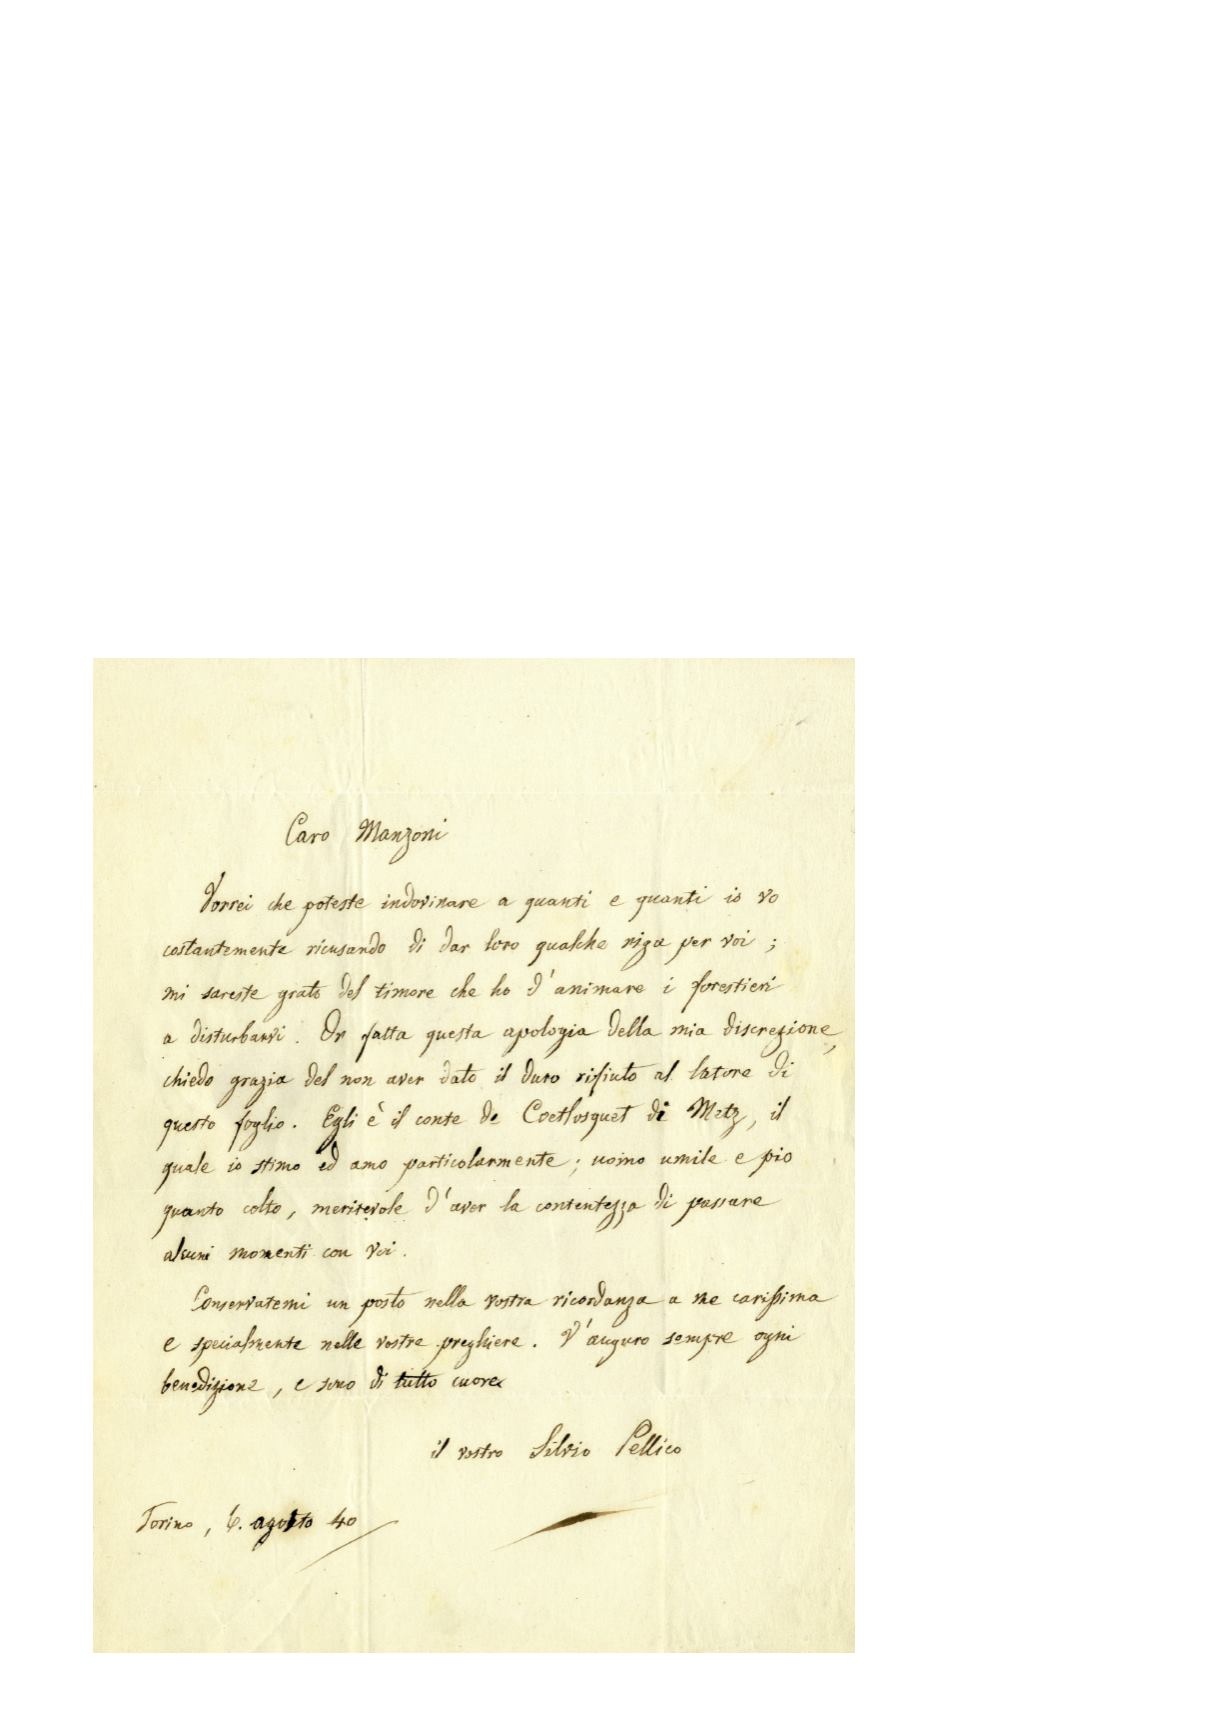 Caro Manzoni
Vorrei che poteste indovinare a quanti e quanti io vo
costantemente ricusando di dar loro qualche riga per voi ;
mi sareste grato del timore che ho d'animare i forestieri
a disturbarvi . Or fatta questa apologia della mia discrezione,
chiedo grazia del non aver dato il duro rifiuto al latore di
questo foglio . Egli è il conte de Coetlosquet di Metz , il
quale io stimo ed amo particolarmente ; uomo umile e pio
quanto colto , meritevole d'aver la contentezza di passare
alcuni momenti con voi .
Conservatemi un posto nella vostra ricordanza a me carissima
e specialmente nelle vostre preghiere . V'auguro sempre ogni
benedizione , e sono di tutto cuore
il vostro Silvio Pellico
Torino , 6. agosto 40